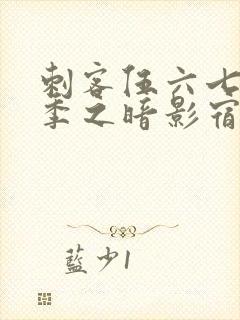 刺客伍六七
季之暗影宿
藍少1